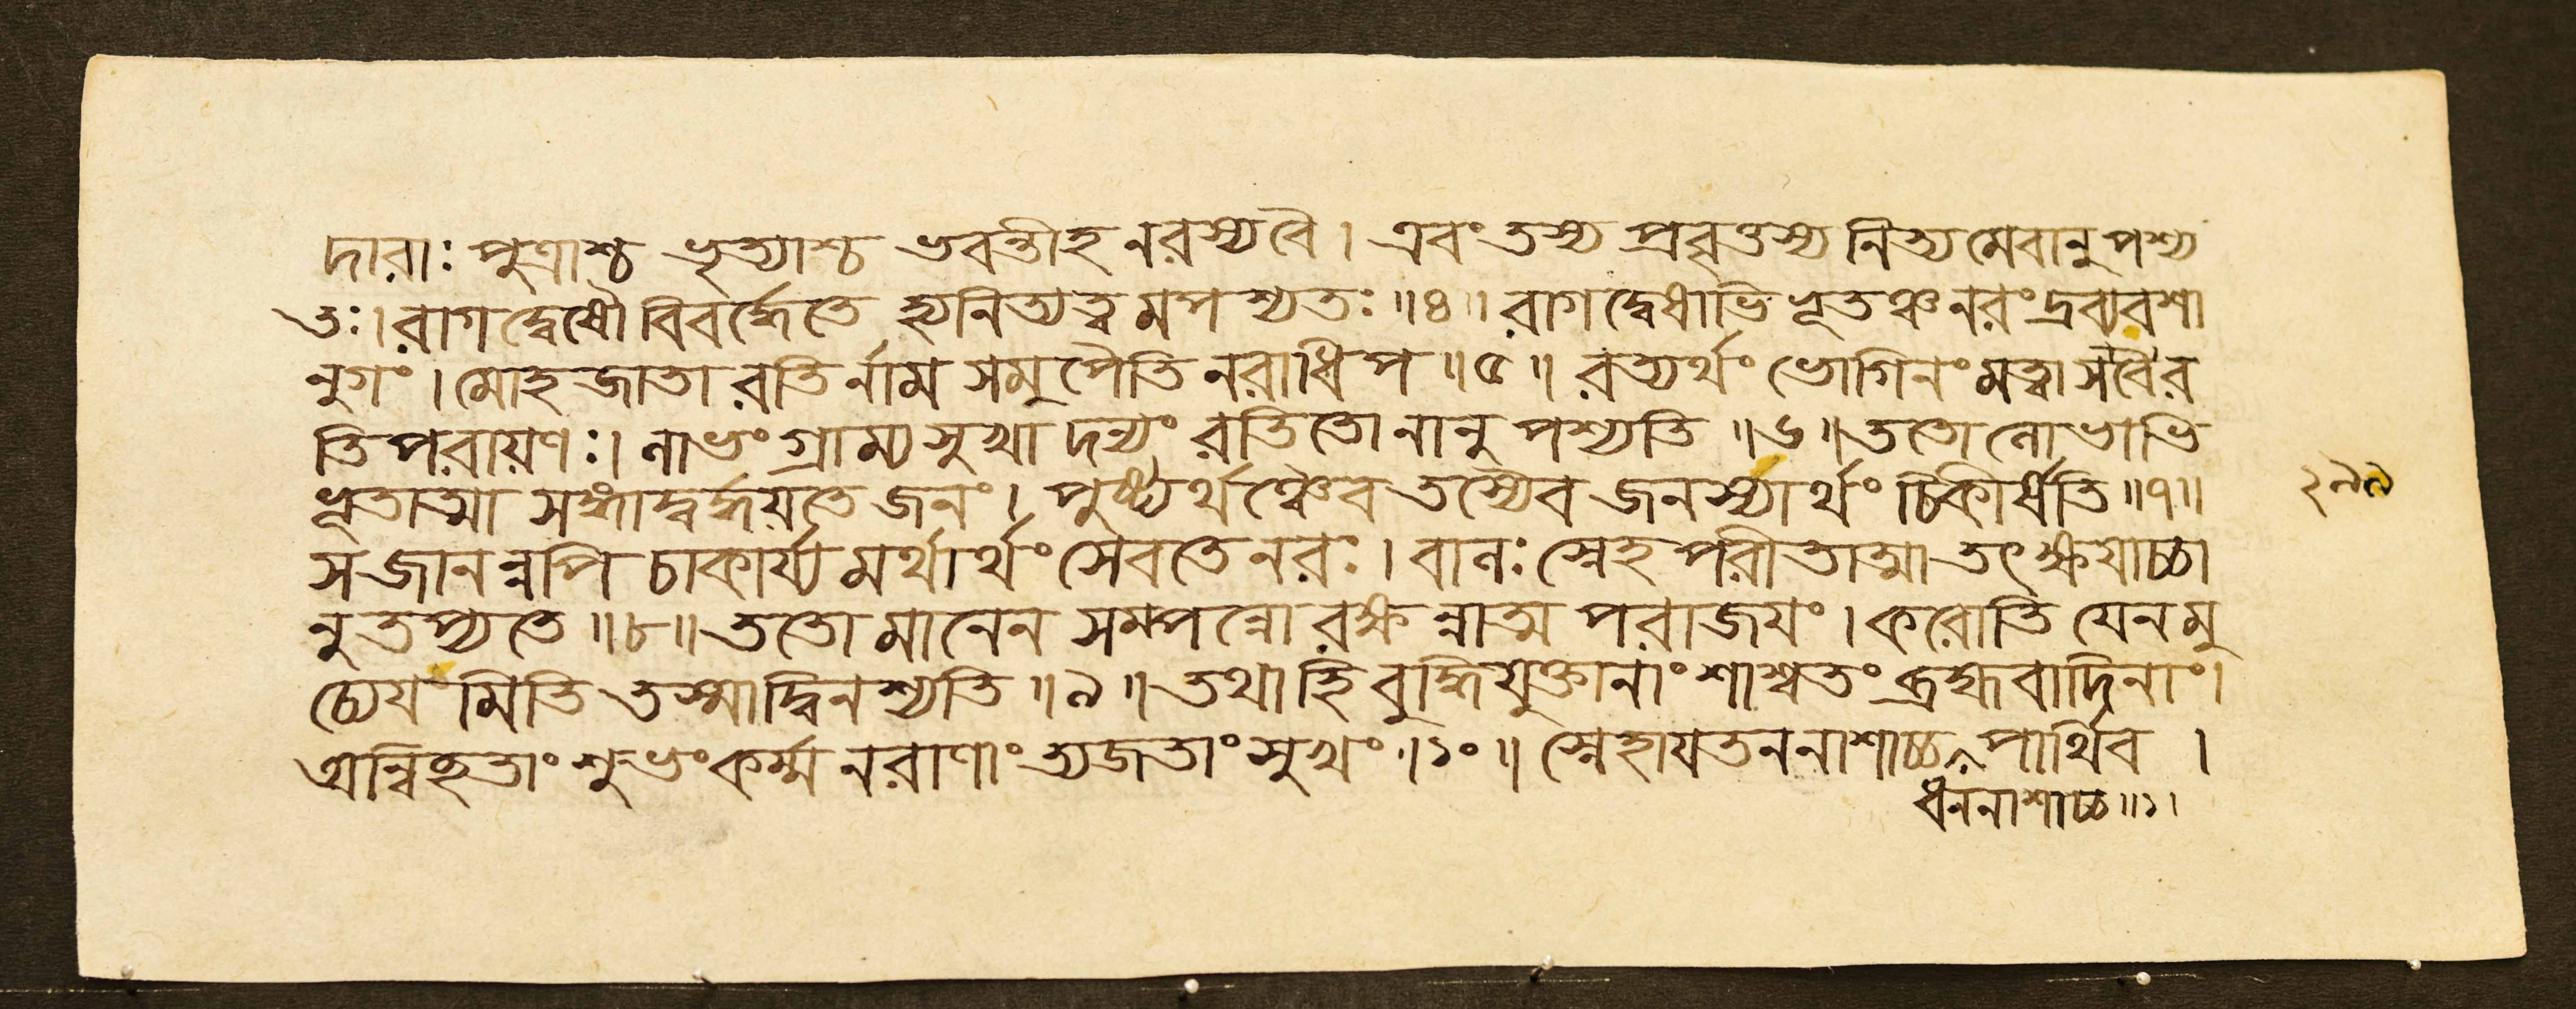 দারাঃ পুত্রাশ্চ ভৃত্যাশ্চ ভবন্তীহ নরস্য বৈ। এবং তস্য প্রবৃত্তস্য নিত্যমেবানুপশ্য
তঃ। রাগদ্বেষৌ বিবর্দ্ধেতে হ্যনিত্যত্বমপশ্যতঃ॥৪॥ রাগদ্বেষাভিভূতঞ্চ নরং দ্রব্যবশা
নুগং। মোহজাতা রতির্নাম সমুপৈতি নরাধিপ॥৫॥ রত্যর্থং ভোগিনং মত্বা স বৈ র
তিপরায়ণঃ। নাভং গ্রাম্যসুখাদন্যং রতিতো নানুপশ্যতি॥৬॥ ততো লোভাভি
ভূতাত্মা সঙ্গাদ্বর্দ্ধয়তে জনং। পুষ্ট্যর্থঞ্চৈব তস্যৈব জনস্যার্থং চিকীর্ষতি॥৭॥
স জানন্নপি চাকার্য্যমর্থার্থং সেবতে নরঃ। বালঃ স্নেহপরীতাত্মা তৎক্ষয়াচ্চা
নুতপ্যতে॥৮॥ ততো মানেন সম্পন্নো রক্ষন্নাত্মপরাজয়ং। করোতি যেন মু
চ্যেয়মিতি তস্মাদ্বিনশ্যতি॥৯॥ তথা হি বুদ্ধিযুক্তানাং শাশ্বতং ব্রহ্মবাদিনাং।
অন্বিচ্ছতাং শুভং কর্ম্ম নরাণাং ত্যজতাং সুখং॥১০॥ স্নেহায়তননাশাচ্চ পার্থিব।
ধননাশাচ্চ॥১।
২৯৯